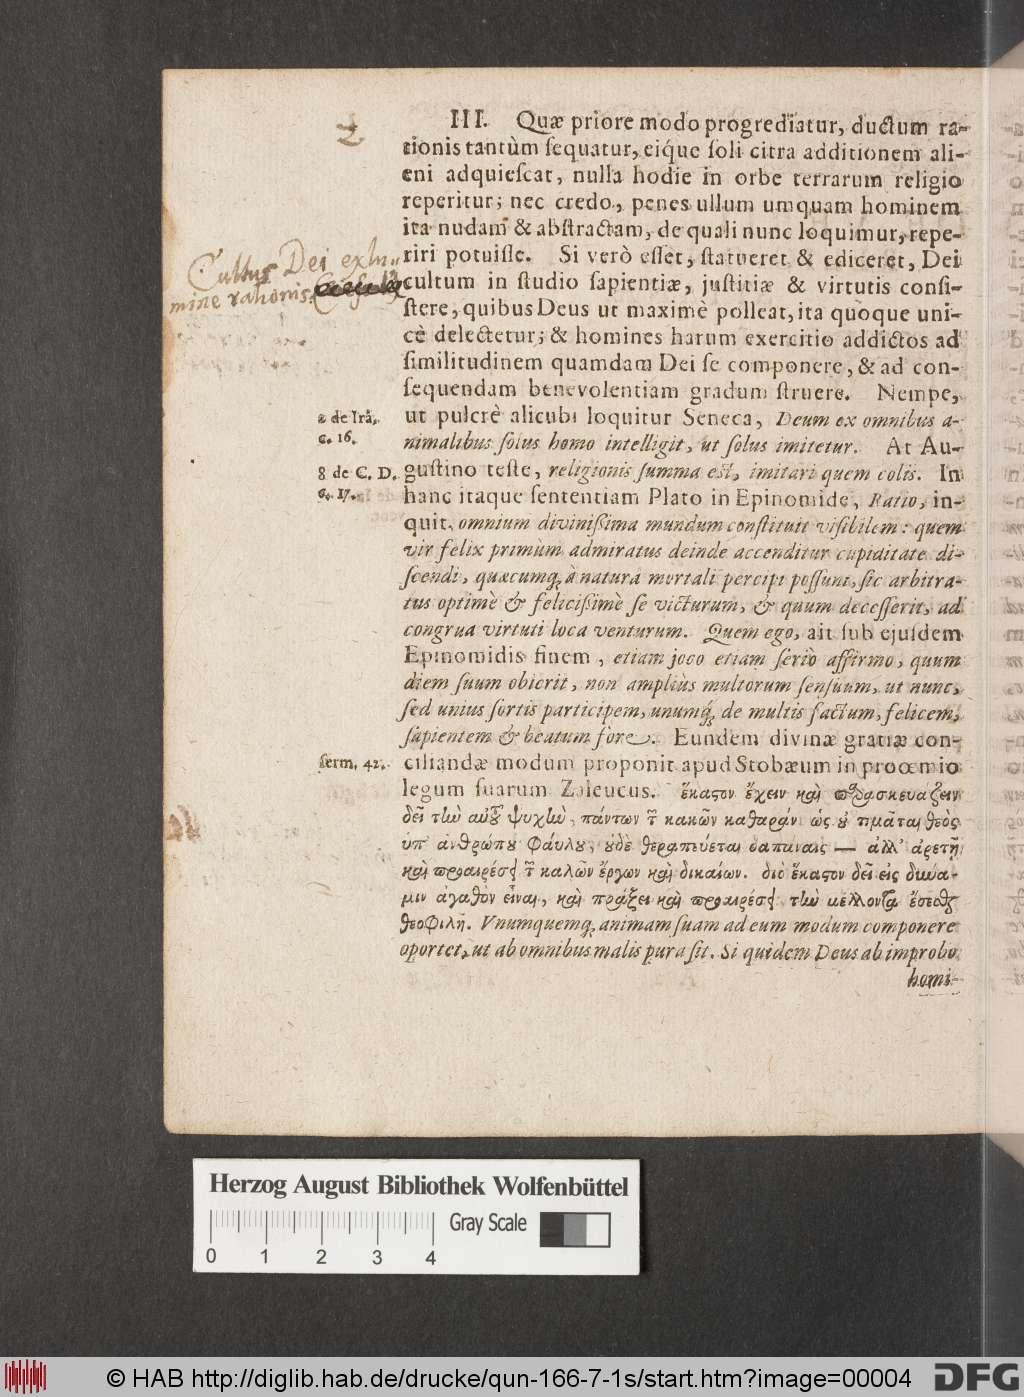 2
III. Quæ priore modo progrediatur, ductum ra-
tionis tantùm ſequatur, eíque ſoli citra additionem ali-
eni adquieſcat, nulla hodie in orbe terrarum religio
reperitur; nec credo, penes ullum umquam hominem
ita nudam & abſtractam, de quali nunc loquimur, repe-
riri potuiſſe. Si verò eſſet, ſtatueret & ediceret, Dei
cultum in ſtudio ſapientiæ, juſtitiæ & virtutis conſi-
ſtere, quibus Deus ut maximè polleat, ita quoque uni-
cè delectetur; & homines harum exercitio addictos ad
ſimilitudinem quamdam Dei ſe componere, & ad con-
ſequendam benevolentiam gradum ſtruere. Nempe,
ut pulcrè alicubi loquitur Seneca, Deum ex omnibus a-
nimalibus ſolus homo intelligit, ut ſolus imitetur. At Au-
guſtino teſte, religionis ſumma eſt, imitari quem colis. In
hanc itaque ſententiam Plato in Epinomide, Ratio, in-
quit, omnium diviniſſima mundum conſtituit viſibilem: quem
vir felix primùm admiratus deinde accenditur cupiditate di-
ſcendi, quæcumq; à natura mortali percipi poſſunt, ſic arbitra-
tus optimè & feliciſſimè ſe victurum, & quum deceſſerit, ad
congrua virtuti loca venturum. Quem ego, ait ſub ejuſdem
Epinomidis finem, etiam joco etiam ſeriò affirmo, quum
diem ſuum obierit, non ampliùs multorum ſenſuum, ut nunc,
ſed unius ſortis participem, unumq; de multis factum, felicem,
ſapientem & beatum fore. Eundem divinæ gratiæ con-
ciliandæ modum proponit apud Stobæum in procemio
legum ſuarum Zaleucus. ἕκαστον ἔχειν καὶ παρασκευάζειν
δεῖ τὴν αὐτοῦ ψυχὴν, πάντων τῶν κακῶν καθαράν· ὡς οὐ τιμᾶται θεὸς
ὑπ' ἀνθρώπου φαύλου, οὐδὲ θεραπεύεται δαπάναις — ἀλλ' ἀρετῇ
καὶ προαιρέσει τῶν καλῶν ἔργων καὶ δικαίων. διὸ ἕκαστον δεῖ εἰς δύνα-
μιν ἀγαθὸν εἶναι, καὶ πράξει καὶ προαιρέσει τὸν μέλλοντα ἔσεσθαι
θεοφιλῆ. Vnumquemq; animam ſuam ad eum modum componere
oportet, ut ab omnibus malis pura ſit. Si quidem Deus ab improbo
homi-
Cultus Dei ex lu-
mine rationis.
2 de Irâ,
c. 16.
8 de C. D.
c. 17.
ſerm. 42.
Herzog August Bibliothek Wolfenbüttel
Gray Scale
0 1 2 3 4
© HAB http://diglib.hab.de/drucke/qun-166-7-1s/start.htm?image=00004
DFG